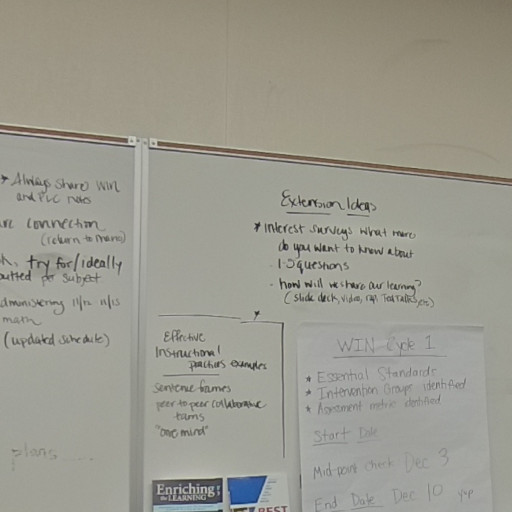 * Always share WIN
and PLC notes
connection
(return to mario)
try for/ideally
per subject
11/12 11/13
math
(updated schedule)
plans
Extension Ideas
* interest surveys what more
do you want to know about
1-2 questions
- how will we share our learning?
(slide deck, video, rap, Ted Talks, etc)
*
Effective
Instructional
practices examples
sentence frames
peer to peer collaborative
teams
"one mind"
WIN Cycle 1
* Essential Standards
* Intervention Groups identified
* Assessment metric identified
Start Date
Mid-point check Dec 3
End Date Dec 10
Enriching
the LEARNING
BEST